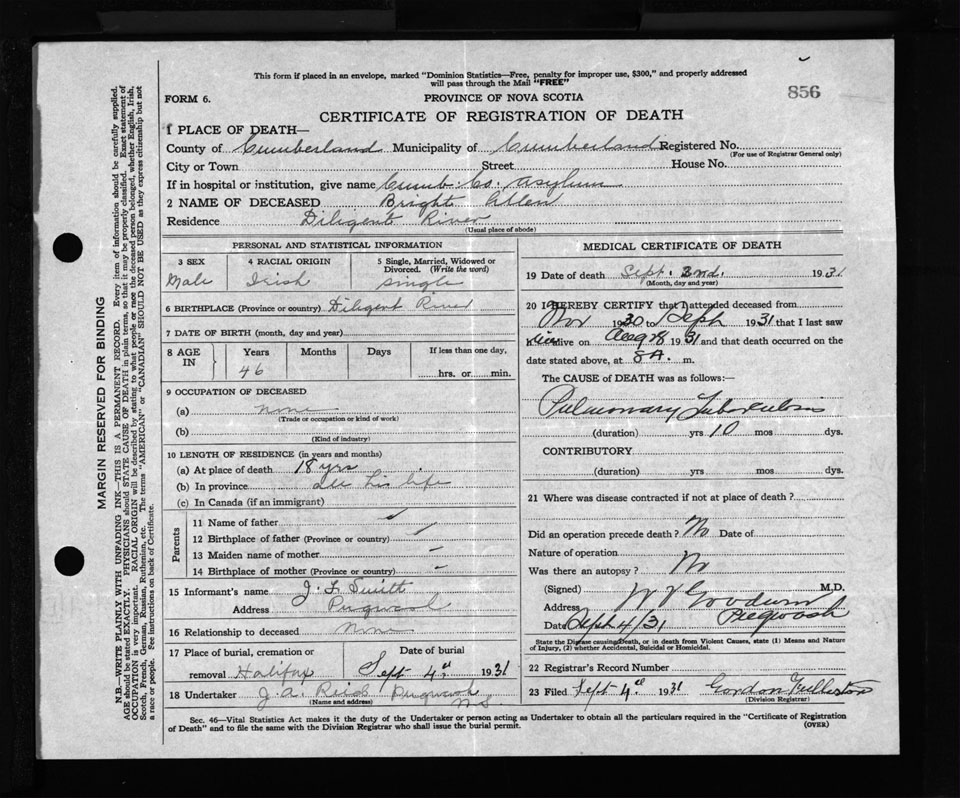 This form if placed in an envelope, marked "Dominion Statistics—Free, penalty for improper use, $300," and properly addressed
will pass through the Mail "FREE"
856
FORM 6.
PROVINCE OF NOVA SCOTIA
CERTIFICATE OF REGISTRATION OF DEATH
1 PLACE OF DEATH—
County of Cumberland Municipality of Cumberland Registered No.
(For use of Registrar General only)
City or Town Street House No.
If in hospital or institution, give name Cumb. Co. Asylum
2 NAME OF DECEASED Bright Allen
Residence Diligent River
(Usual place of abode)
PERSONAL AND STATISTICAL INFORMATION
3 SEX 4 RACIAL ORIGIN 5 Single, Married, Widowed or
Divorced. (Write the word)
Male Irish Single
6 BIRTHPLACE (Province or country) Diligent River
7 DATE OF BIRTH (month, day and year)
8 AGE IN Years Months Days If less than one day,
46 hrs. or min.
9 OCCUPATION OF DECEASED
(a) none
(Trade or occupation or kind of work)
(b)
(Kind of industry)
10 LENGTH OF RESIDENCE (in years and months)
(a) At place of death 18 yrs
(b) In province all his life
(c) In Canada (if an immigrant)
Parents
11 Name of father
12 Birthplace of father (Province or country)
13 Maiden name of mother -
14 Birthplace of mother (Province or country) -
15 Informant's name J. L. Smith
Address Pugwash
16 Relationship to deceased None
17 Place of burial, cremation or
removal Halifax
Date of burial
Sept 4th 1931
18 Undertaker J. A. Reid Pugwash
N.S.
(Name and address)
MEDICAL CERTIFICATE OF DEATH
19 Date of death Sept. 2nd. 1931
(Month, day and year)
20 I HEREBY CERTIFY that I attended deceased from
Nov 1930 to Sept 1931 that I last saw
him alive on Aug 28 1931 and that death occurred on the
date stated above, at 8 A. m.
The CAUSE of DEATH was as follows:—
Pulmonary Tuberculosis
(duration) yrs 10 mos dys.
CONTRIBUTORY
(duration) yrs mos dys.
21 Where was disease contracted if not at place of death?
Did an operation precede death? No Date of
Nature of operation
Was there an autopsy? No
(Signed) M.D.
Address Pugwash
Date Sept 4/31
State the Disease causing Death, or in death from Violent Causes, state (1) Means and Nature
of Injury, (2) whether Accidental, Suicidal or Homicidal.
22 Registrar's Record Number
23 Filed Sept 4th 1931 Gordon Fullerton
(Division Registrar)
Sec. 46—Vital Statistics Act makes it the duty of the Undertaker or person acting as Undertaker to obtain all the particulars required in the "Certificate of Registration
of Death" and to file the same with the Division Registrar who shall issue the burial permit.
(OVER)
MARGIN RESERVED FOR BINDING
N.B.—WRITE PLAINLY WITH UNFADING INK—THIS IS A PERMANENT RECORD. Every item of information should be carefully supplied.
AGE should be stated EXACTLY. PHYSICIANS should STATE CAUSE OF DEATH in plain terms, so that it may be properly classified. Exact statement of
OCCUPATION is very important. RACIAL ORIGIN will be described by stating to what people or race the deceased person belonged, whether English, Irish,
Scotch, French, German, Russian, Ruthenian, etc. The terms "AMERICAN" or "CANADIAN" SHOULD NOT BE USED as they express citizenship but not
a race or people. See instructions on back of Certificate.